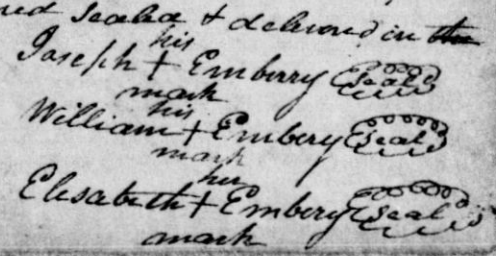 ned sealed & delivered in the
his
Joseph + Emberry seal
mark
his
William + Embery seal
mark
her
Elisabeth + Embery seal
mark